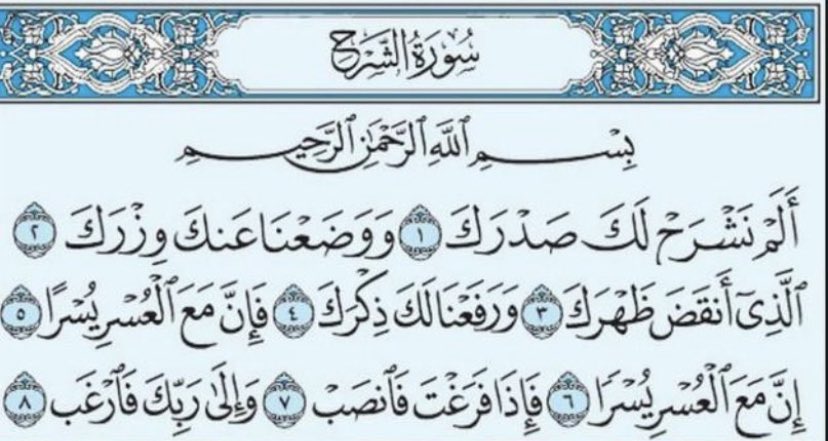 سُورَةُ الشَّرْحِ
بِسْمِ ٱللَّهِ ٱلرَّحْمَٰنِ ٱلرَّحِيمِ
أَلَمْ نَشْرَحْ لَكَ صَدْرَكَ ١ وَوَضَعْنَا عَنكَ وِزْرَكَ ٢
ٱلَّذِىٓ أَنقَضَ ظَهْرَكَ ٣ وَرَفَعْنَا لَكَ ذِكْرَكَ ٤ فَإِنَّ مَعَ ٱلْعُسْرِ يُسْرًا ٥
إِنَّ مَعَ ٱلْعُسْرِ يُسْرًا ٦ فَإِذَا فَرَغْتَ فَٱنصَبْ ٧ وَإِلَىٰ رَبِّكَ فَٱرْغَب ٨